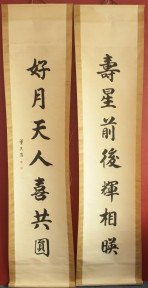 壽星前後輝相暎
好月天人喜共圓